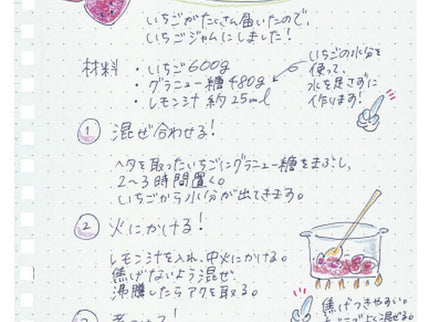 いちごがたくさん届いたので、
いちごジャムにしました！
材料 ・いちご600g
・グラニュー糖480g
・レモン汁 約25ml
いちごの水分を
使って、
水を足さずに
作ります！
① 混ぜ合わせる！
ヘタを取ったいちごにグラニュー糖をまぶし、
2〜3時間置く。
いちごから水分が出てきます。
② 火にかける！
レモン汁を入れ、中火にかける。
焦げないよう混ぜ、
沸騰したらアクを取る。
焦げつきやすい。